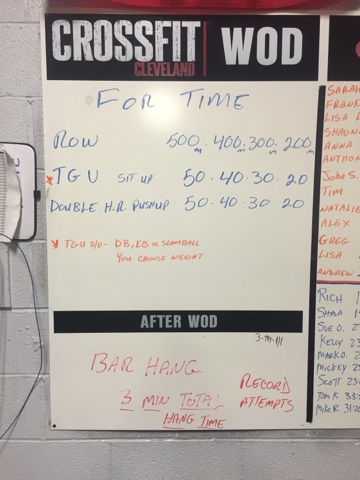 CROSSFIT
CLEVELAND
WOD
FOR TIME
ROW 500m. 400m. 300m. 200m
* TGU SIT UP 50.40.30.20
DOUBLE H.R. PUSHUP 50.40.30.20
* TGU S/U- DB, KB or SLAMBALL
YOU CHOOSE WEIGHT
AFTER WOD
BAR HANG
3 MIN TOTAL
HANG TIME
RECORD
ATTEMPTS
SARAH
FRANK
LISA
SHAUN
ANNA
ANTHON
John S.
TIM
NATALIE
ALEX
GREG
LISA
ANDREW
RICH
SHANA
SUE D.
KELLY 23
MARK D.
MICKEY
SCOTT 23
TOM K 33
MIKE R 31:20